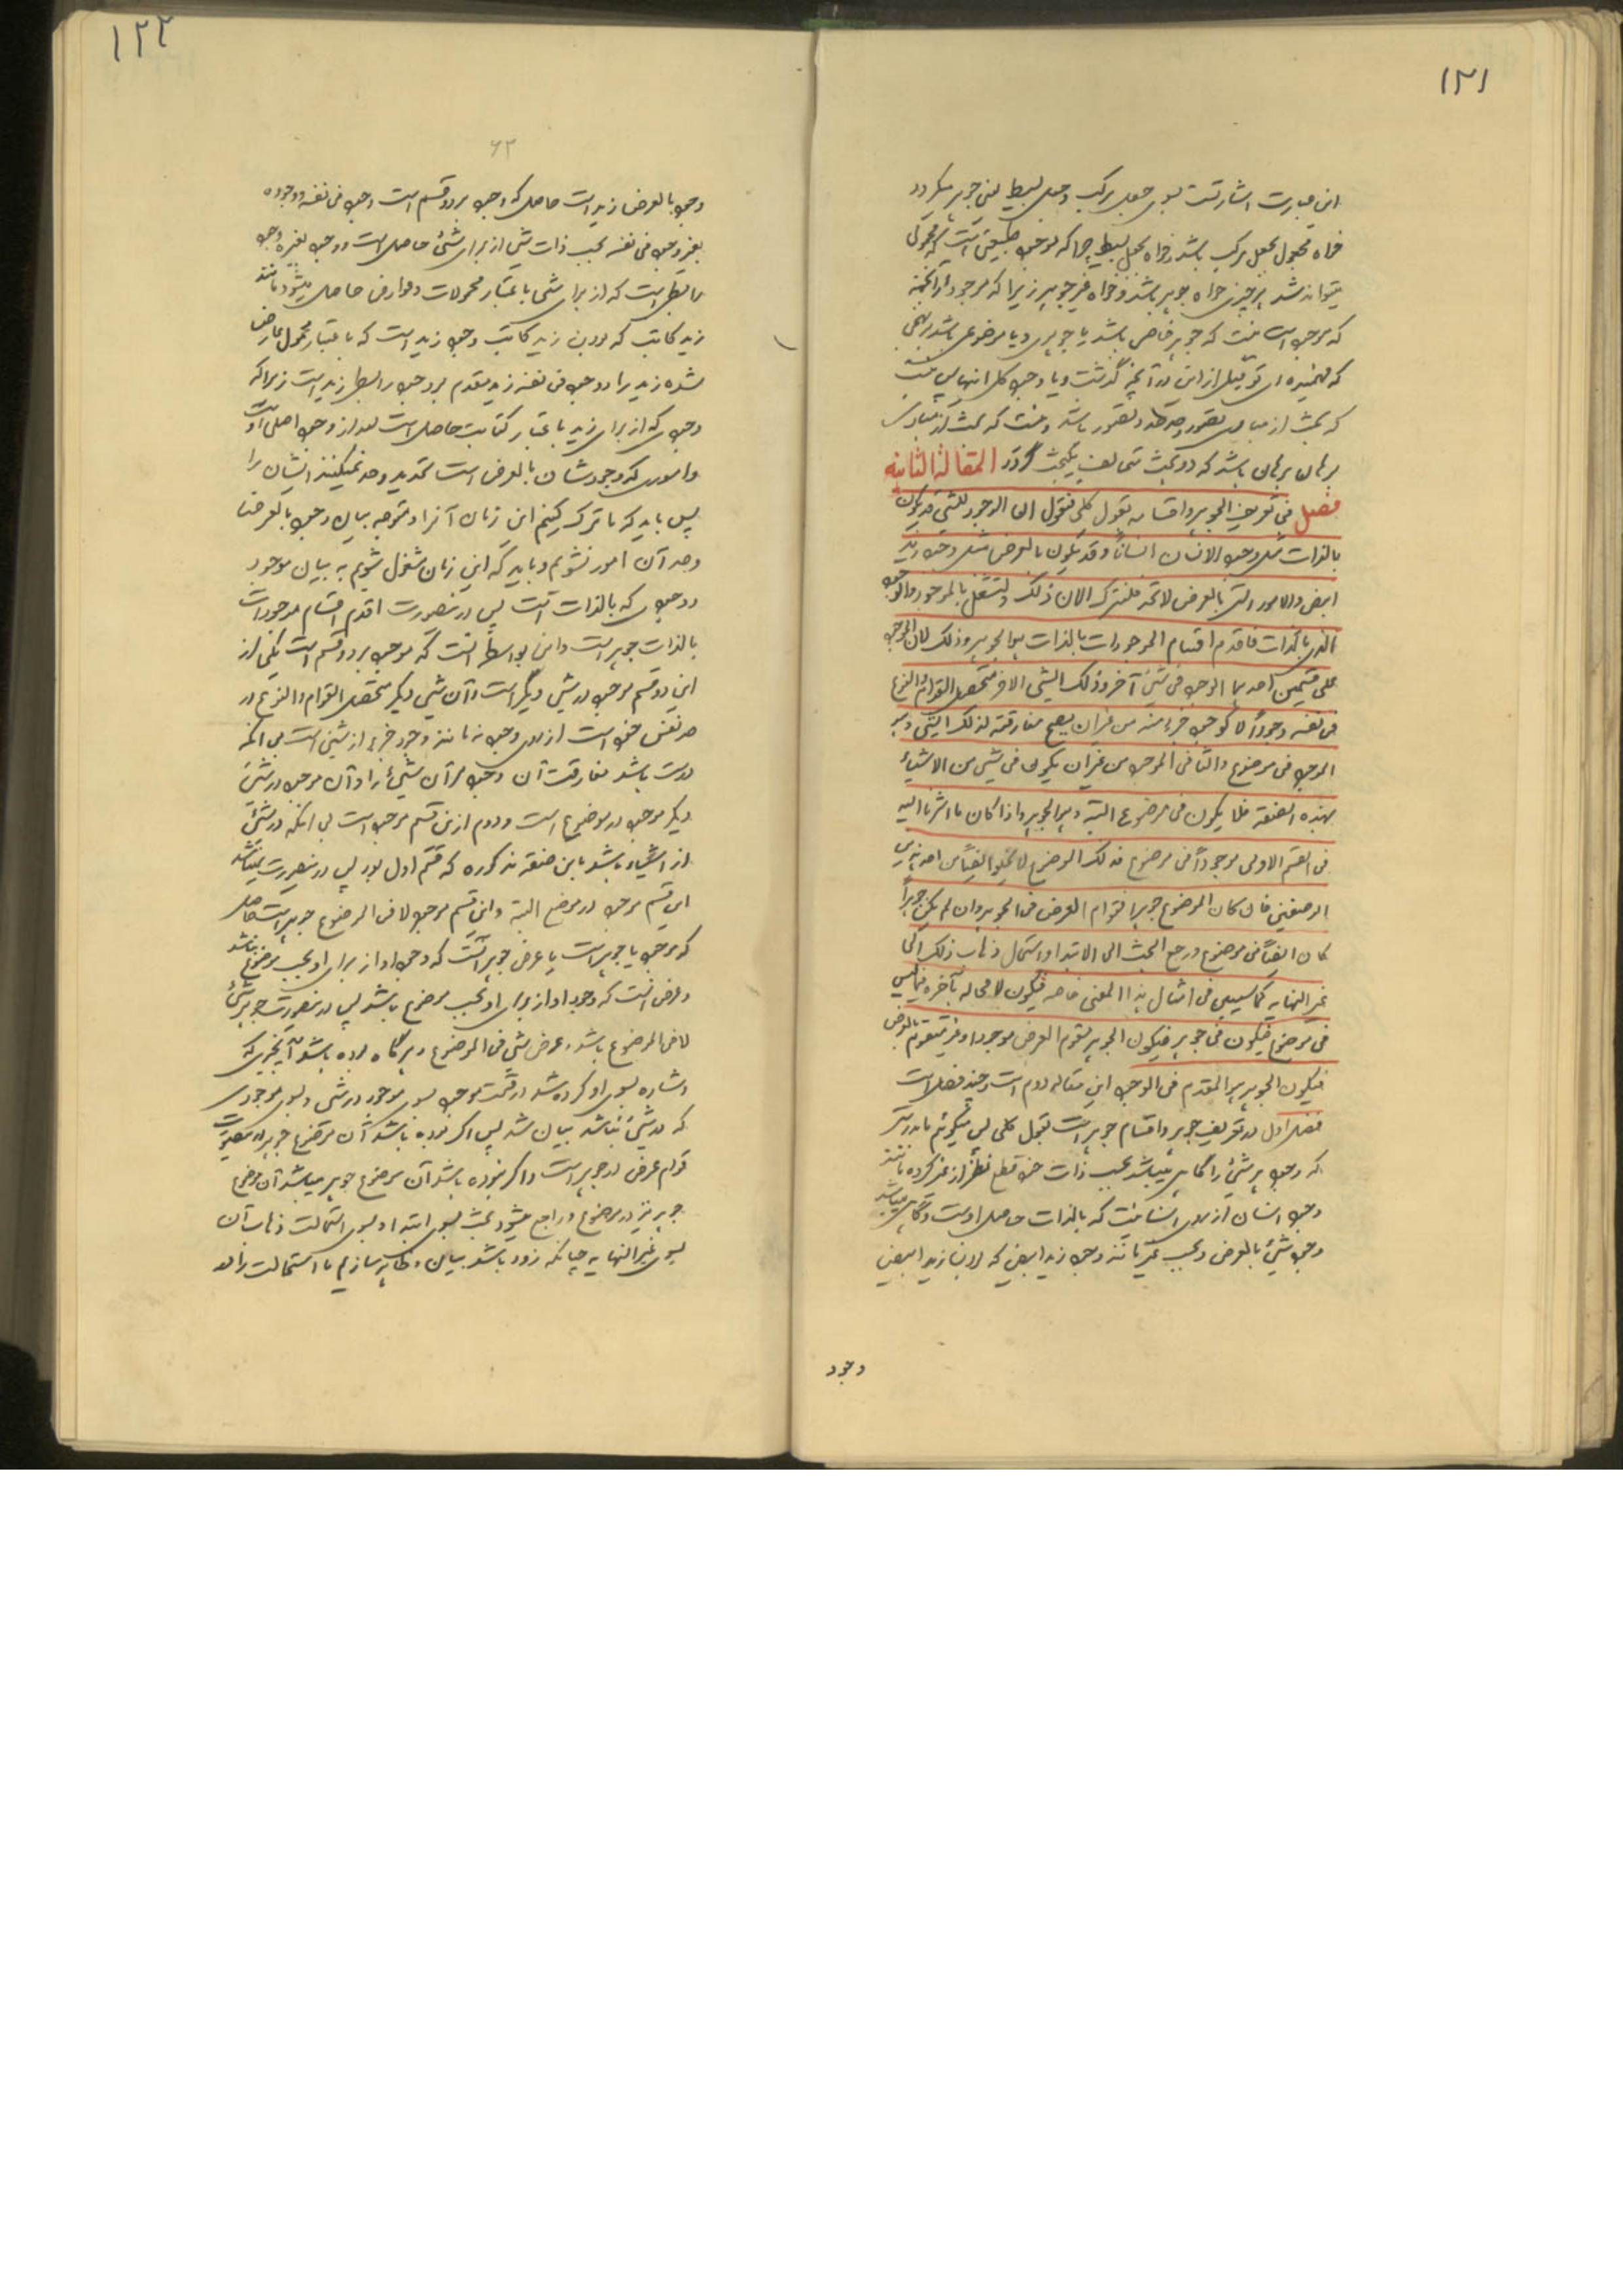 ۱۲۱
این عبارت اشارتست بسوی جعل مرکب و جعل بسیط یعنی جوهر میگردد
خواه مجعول بجعل مرکب باشد و خواه بجعل بسیط چرا که موجود طبیعتی است که محمولی
میتواند شد بر چیزی خواه جوهر باشد و خواه غیر جوهر زیرا که موجود از آنجهة
که موجود است نیست که جوهر خاص باشد یا جوهری و یا موضوعی باشد
که فهمیده ای تو قبل از این در آنچه گذشت و یا وجود کل انها پس نیست
که بحث از مبادی تصور و حد حد و تصور باشد و نیست که بحث از مبادی
برهان برهان باشد که دو بحث متخالف یکبحث گردد المقالة الثانیه
فصل فی تعریف الجوهر و اقسامه بقول کلی فنقول ان الوجود للشئ قد یکون
بالذات مثل وجود الانسان انساناً و قد یکون بالعرض مثل وجود زید
ابیض و الامور التی بالعرض لا تحد فلنترک الان ذلک و لنشتغل بالموجود و الوجود
الذی بالذات فاقدم اقسام الموجودات بالذات هو الجوهر و ذلک لان الموجود
علی قسمین احدهما الموجود فی شئ آخر و ذلک الشئ الاخر متحصل القوام و النوع
فی نفسه وجوداً لا کوجود جزء منه من غیر ان یصح مفارقته لذلک الشئ و هو
الموجود فی موضوع و الثانی الموجود من غیر ان یکون فی شئ من الاشیاء
بهذه الصفة فلا یکون فی موضوع البتة و هو الجوهر و اذا کان ما اشرنا الیه
فی القسم الاول موجوداً فی موضوع فذلک الموضوع لا یخلو ایضاً من احد هذین
الوصفین فان کان الموضوع جوهرا فقوام العرض فی الجوهر و ان لم یکن جوهراً
کان ایضاً فی موضوع و رجع البحث الی الابتداء و استحال ذهاب ذلک الی
غیر النهایه کما سنبین فی امثال هذا المعنی خاصه فیکون لا محاله آخره فیما لیس
فی موضوع فیکون فی جوهر فیکون الجوهر مقوم العرض موجودا و غیر متقوم بالعرض
فیکون الجوهر هو المقدم فی الوجود این مقاله دوم است و چند فصل است
فصل اول در تعریف جوهر و اقسام جوهر است بقول کلی پس میگوئیم بدرستی
که وجود هر شئ را گاهی میباشد بحسب ذات خود قطع نظر از غیر کرده مانند
وجود انسان از برای انسانیت که بالذات حاصل اوست و گاهی میباشد
وجود شئ بالعرض و بحسب غیر مانند وجود زید ابیض که لان زید ابیض
وجود
۱۲۲
۶۲
وجود بالعرض زید است حاصل که وجود بر دو قسم است وجود فی نفسه و وجود
بغیر وجود فی نفسه بحسب ذات شئ از برای شئ حاصل است و وجود بغیره وجود
رابطی است که از برای شئ باعتبار محمولات و عوارض حاصل میشود مانند
زید کاتب که بودن زید کاتب وجود زید است که باعتبار محمول عارض
شده زید را و وجود فی نفسه زید مقدم بر وجود رابطی زید است زیرا که
وجودی که از برای زید باعتبار کتابت حاصل است بعد از وجود اصلی اوست
و اموری که وجودشان بالعرض است تحدید و حد نمیکنند ایشان را
پس باید که ما ترک کنیم این زمان آنرا و متوجه بیان وجود بالعرض
و حد آن امور نشویم و باید که این زمان مشغول شویم به بیان موجود
و وجودی که بالذات است پس درینصورت اقدم اقسام موجودات
بالذات جوهر است و این بواسطهٔ آنست که موجود بر دو قسم است یکی از
این دو قسم موجود در شئ دیگر است و آن شئ دیگر متحصل القوام و النوع در
حد نفس خود است از برای وجود نه مانند وجود جزء از شئ است بی آنکه
درست باشد مفارقت آن وجود مر آن شئ را و آن موجود در شئ
دیگر موجود در موضوع است و دوم ازین قسم موجود است بی آنکه در شئ
از اشیاء باشد باین صفة مذکوره که قسم اول بود پس درینصورت نمیباشد
این قسم موجود در موضع البتة و این قسم موجود لا فی الموضوع جوهر است حاصل
که موجود یا جوهر است یا عرض جوهر آنست که وجود او از برای او بحسب موضوع نباشد
و عرض آنست که وجود او از برای او بحسب موضوع باشد پس درینصورت جوهر شئ
لا فی الموضوع باشد و عرض شئ فی الموضوع و هرگاه بوده باشد آنچیزی که
اشاره بسوی او کرده شد در قسمت موجود بسوی موجود در شئ و بسوی موجودی
که در شئ نباشد بیان شد پس اگر بوده باشد آن موضوع جوهر درینصورت
قوام عرض در جوهر است و اگر نبوده باشد آن موضوع جوهر میباشد آن موضوع
جوهر نیز در موضوع و راجع میشود بحث بسوی ابتداء و بسوی استحالت ذهاب آن
بسوی غیر النهایه چنانکه زود باشد بیان و ظاهر سازیم ما استحالت را در